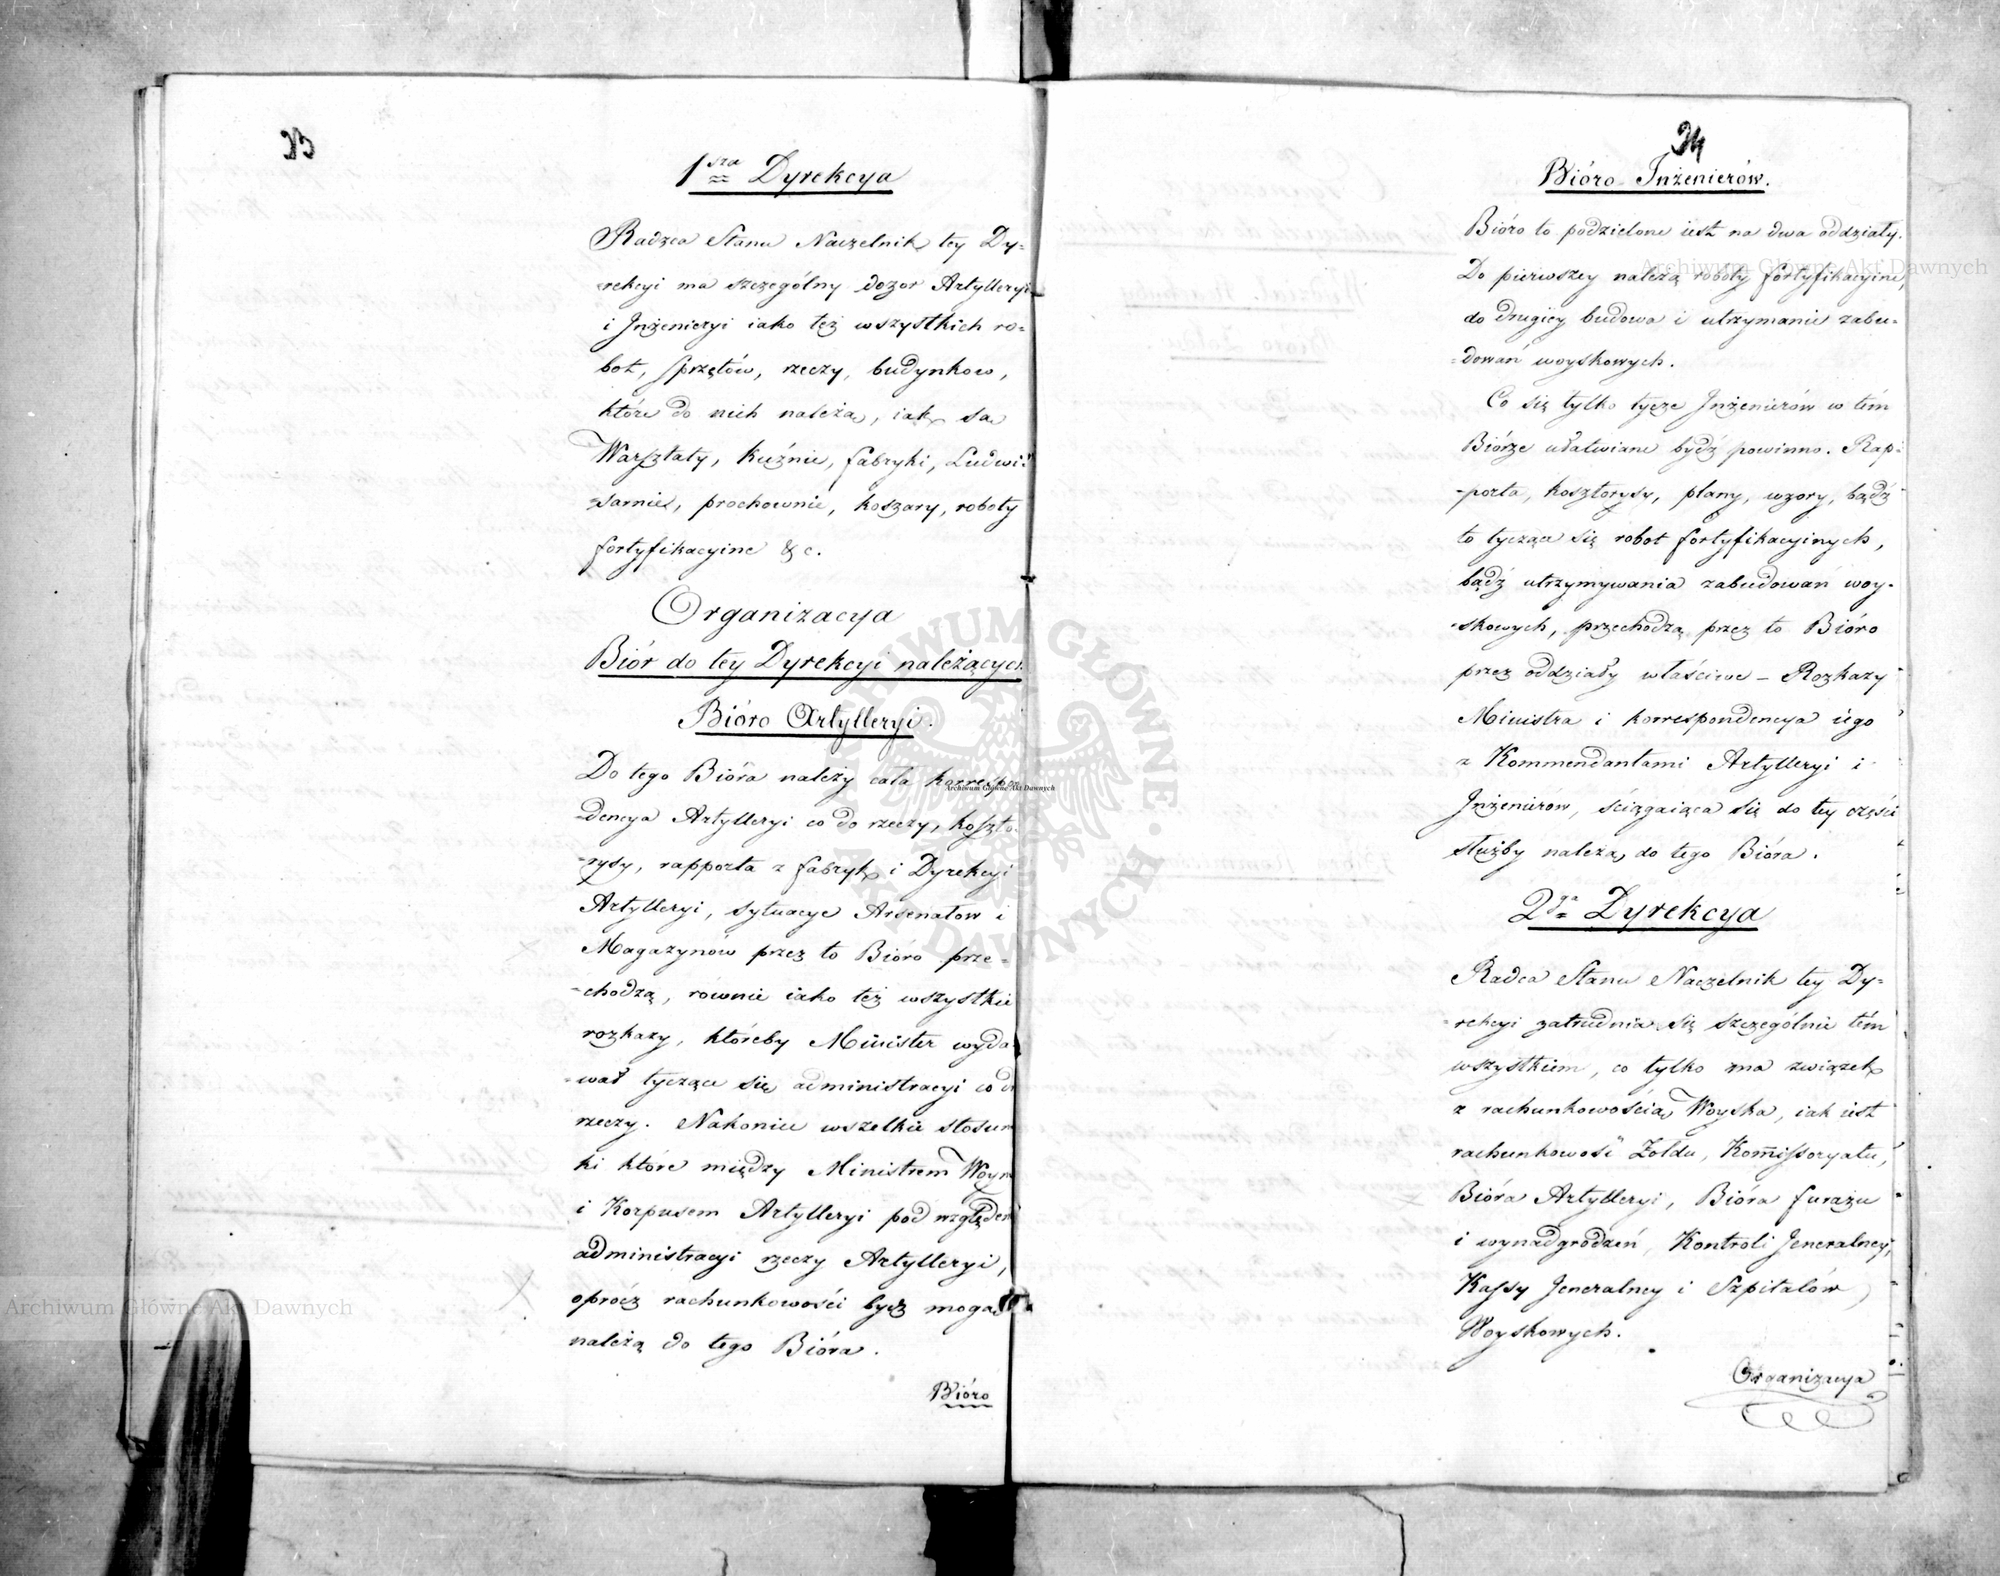 23
1sza Dyrekcya
Radzca Stanu Naczelnik tey Dy-
rekcyi ma szczególny dozor Artylleryi
i Jnżenieryi iako też wszystkich ro-
bot, sprzętów, rzeczy, budynkow,
które do nich należą, iak są
Warsztaty, kuźnie, fabryki, Ludwi-
sarnie, prochownie, koszary, roboty
fortyfikacyine &c.
Organizacya
Biór do tey Dyrekcyi należących
Bióro Artylleryi.
Do tego Bióra należy cała korrespon
-dencya Artylleryi co do rzeczy, koszto-
-rysy, rapporta z fabryk i Dyrekcyi
Artylleryi, sytuacye Arsenałow i
Magazynów przez to Bióro prze-
-chodzą, równie iako też wszystkie
rozkazy, któreby Minister wyda-
-wał tyczące się administracyi co do
rzeczy. Nakoniec wszelkie stosun
ki które między Ministrem Woyny
i Korpusem Artylleryi pod względem
administracyi rzeczy Artylleryi,
oprócz rachunkowości bydz mogą
należą do tego Bióra.
Bióro
24
Bióro Jnżenierów.
Bióro to podzielone iest na dwa oddziały.
Do pierwszey należą roboty fortyfikacyine,
do drugiey budowa i utrzymanie zabu-
-dowań woyskowych.
Co się tylko tycze Jnżenierów w tém
Biórze ułatwiane bydź powinno. Rap-
-porta, kosztorysy, plany, wzory, bądź
to tyczące się robot fortyfikacyinych,
bądź utrzymywania zabudowań woy-
-skowych, przechodzą przez to Bióro
przez oddziały właściwe – Rozkazy
Ministra i korrespondencya iego
z Kommendantami Artylleryi i
Jnżenierów, ściągaiąca się do tey części
służby należą do tego Bióra.
2ga Dyrekcya
Radca Stanu Naczelnik tey Dy-
-rekcyi zatrudnia się szczególnie tém
wszystkiem, co tylko ma związek
z rachunkowością Woyska, iak iest
rachunkowość Żołdu, Kommissoryatu,
Bióra Artylleryi, Bióra furażu
i wynadgrodzeń, Kontroli Jeneralney,
Kassy Jeneralney i Szpitalów
Woyskowych.
Organizacya
Archiwum Główne Akt Dawnych
Archiwum Główne Akt Dawnych
Archiwum Główne Akt Dawnych
ARCHIWUM GŁÓWNE AKT DAWNYCH